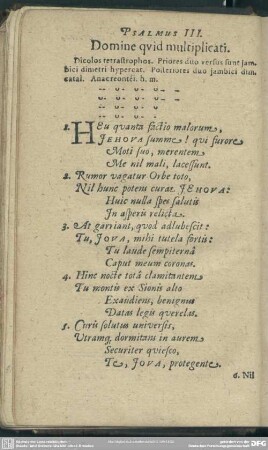 PSALMUS III.
Domine qvid multiplicati.
Dicolos tetrastrophos. Priores duo versus sunt jam-
bici dimetri hypercat. Posteriores duo jambici dim.
catal. Anacreontēi. h. m.
1. HEu quanta factio malorum,
JEHOVA summe! qui furore
Moti suo, merentem
Me nil mali, lacessunt.
2. Rumor vagatur Orbe toto,
Nil hunc potens curat JEHOVA:
Huic nulla spes salutis
In asperis relicta.
3. At garriant, qvod adlubescit:
Tu, JOVA, mihi tutela fortis:
Tu laude sempiternâ
Caput meum coronas.
4. Hinc nocte totâ clamitantem
Tu montis ex Sionis alto
Exaudiens, benignus
Datas legis qverelas.
5. Curis solutus universis,
Utramq, dormitans in aurem
Securiter qviesco,
Te, JOVA, protegente.
6. Nil